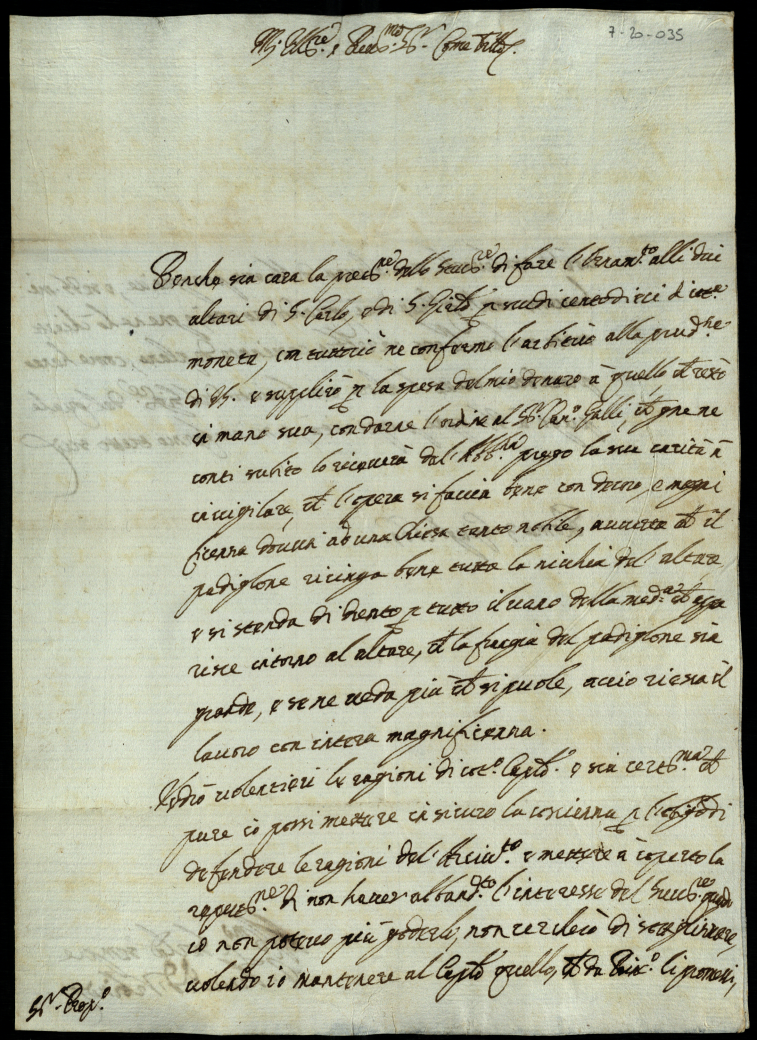 7-20-035
M. Ill.re e Rev.mo Sr. Come fratello.
Benche sia cara la del di fare l' alli dui
altari di S. Carlo, e di S. p scudi centodieci di cot.a
moneta, con tuttociò ne confermo l'arbitrio alla prud.
di VS. e supplirò p la spesa del mio denaro à quello ch restò
in mano sua, con darne l'ordine al Sr. Can.o Galli, ch gne ne
conti subito lo riceverà dal prego la sua carità à
invigilare, ch l'opera si faccia bene con decoro, e magni
ficenza dovuti ad una Chiesa tanto nobile, averta ch il
padiglone ricinga bene tutta la nicchia del altare,
e si stenda di dentro p tutto il vano della med.a ch appa
risce intorno al altare, ch la frangia del padiglone sia
grande, e se ne veda più ch si puole, acciò riesca il
lavoro con intera magnificenza.
Vedrò volentieri le ragioni di cot.o Cap.lo e sia certis.ma ch
pure io possi mettere in sicuro la coscienza p l' di
defendere le ragioni del e mettere à coperto la
di non haver abband.to l'interesse del Succ.re
io non potevo più goderlo, non
volendo io mantenere al Cap.lo quello, ch da li promessi,
Sr. Prop.o